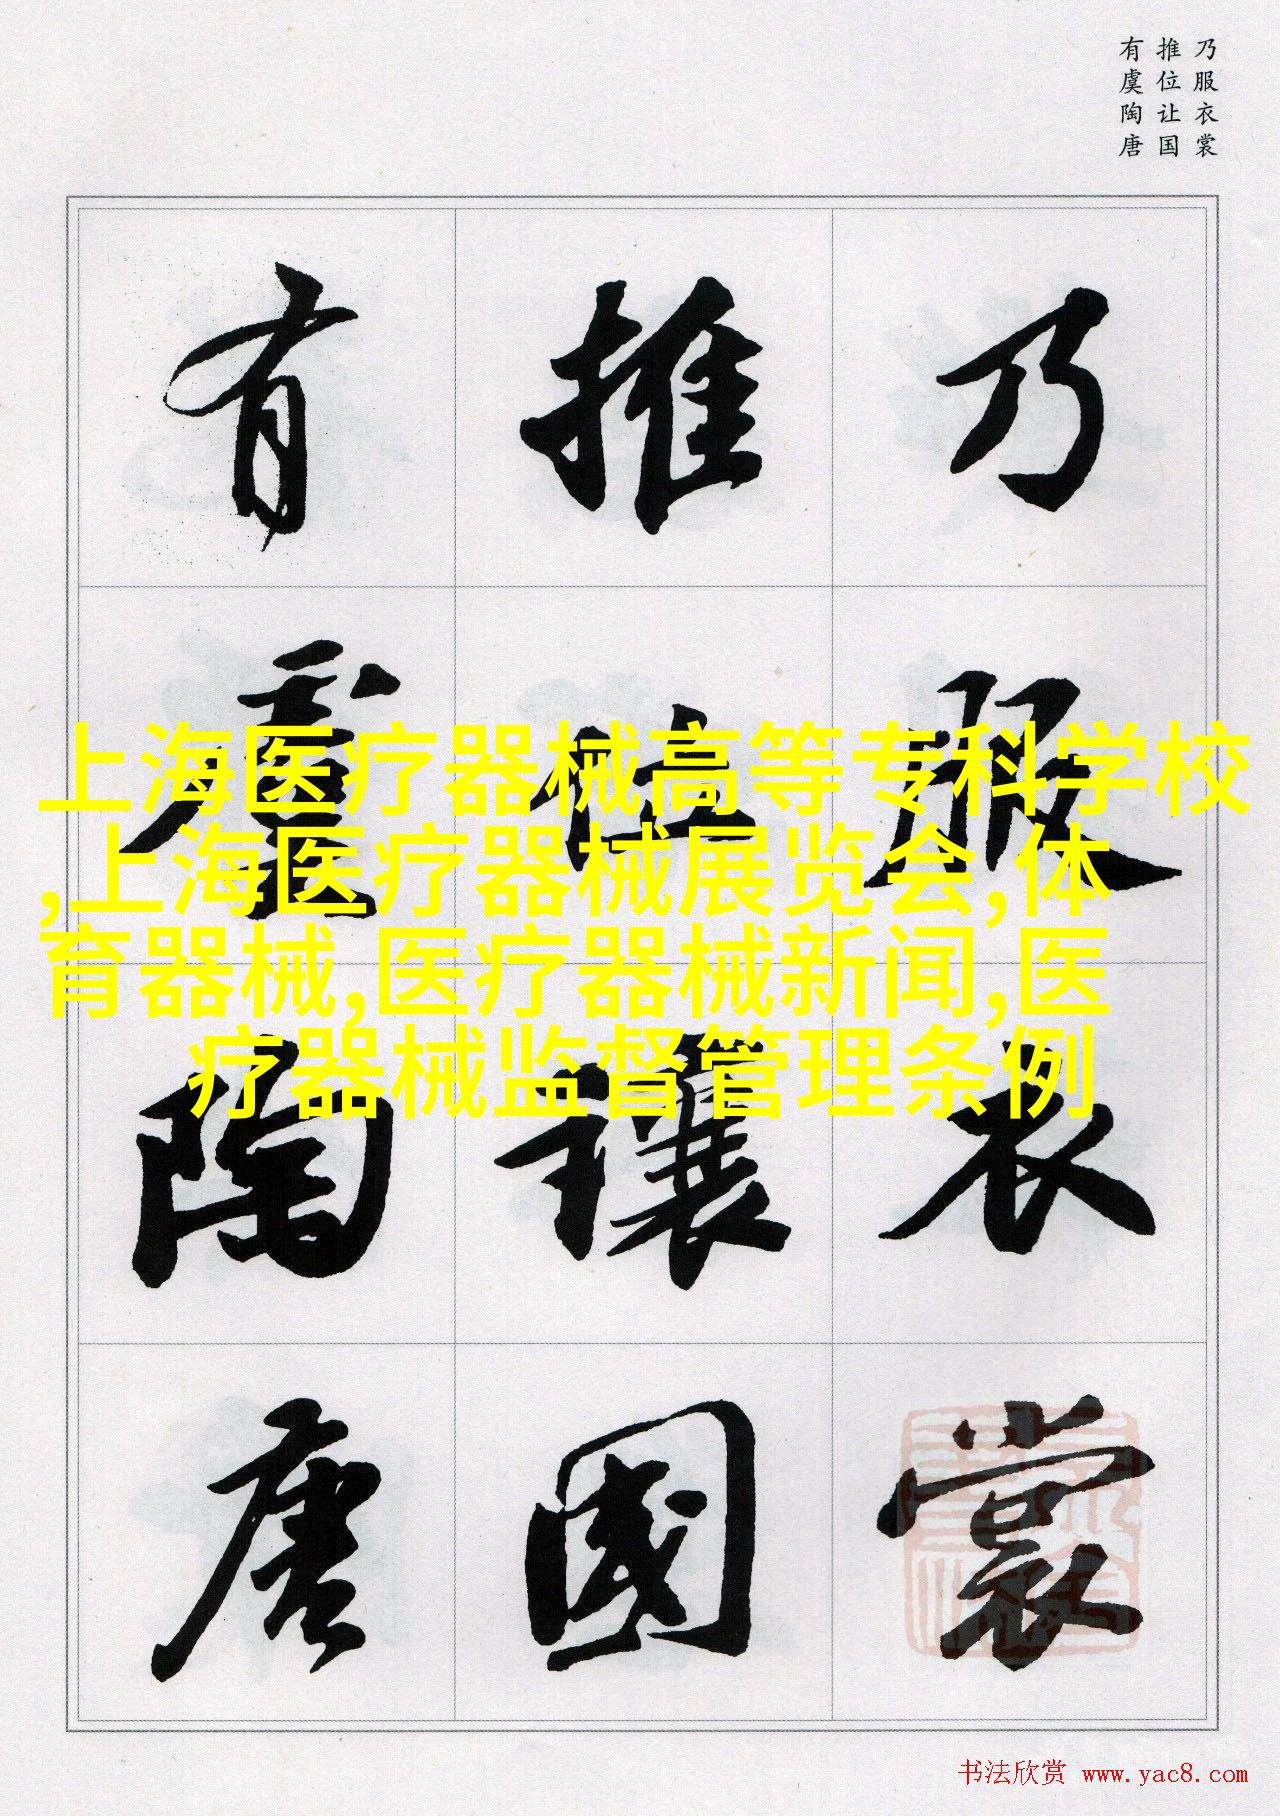 乃服衣裳
推位让国
有虞陶唐
乃服衣裳
推位讓國
有虞陶唐
上海医疗器械高等专科学校
,上海医疗器械展览会,体
育器械,医疗器械新闻,医
疗器械监督管理条例
书法欣赏 www.yac8.com